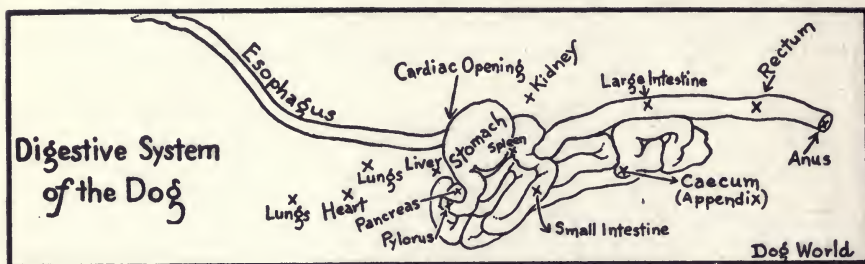 Digestive System
of the Dog
Esophagus
Cardiac Opening
Kidney
Large Intestine
Rectum
Anus
Stomach
Spleen
Lungs
Heart
Lungs
Liver
Pancreas
Pylorus
Small Intestine
Caecum
(Appendix)
Dog World